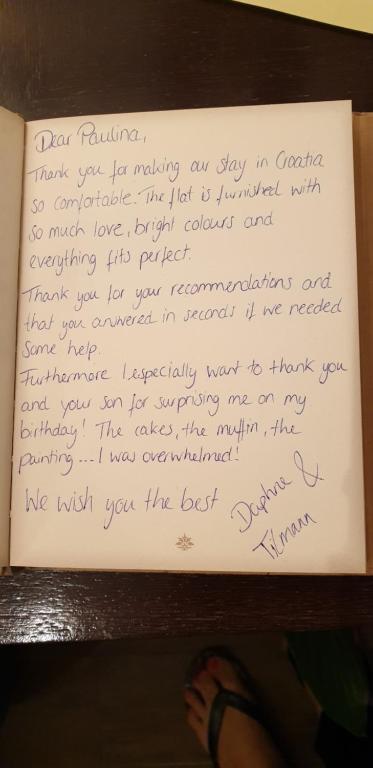 Dear Paulina,
Thank you for making our stay in Croatia
so comfortable. The flat is furnished with
so much love, bright colours and
everything fits perfect.
Thank you for your recommendations and
that you answered in seconds if we needed
some help.
Furthermore I especially want to thank you
and your son for surprising me on my
birthday! The cakes, the muffin, the
painting... I was overwhelmed!
We wish you the best
Daphne &
Tilmann